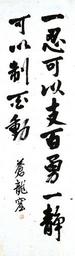 一忍可以支百勇一靜
可以制百動
蒼龍窟